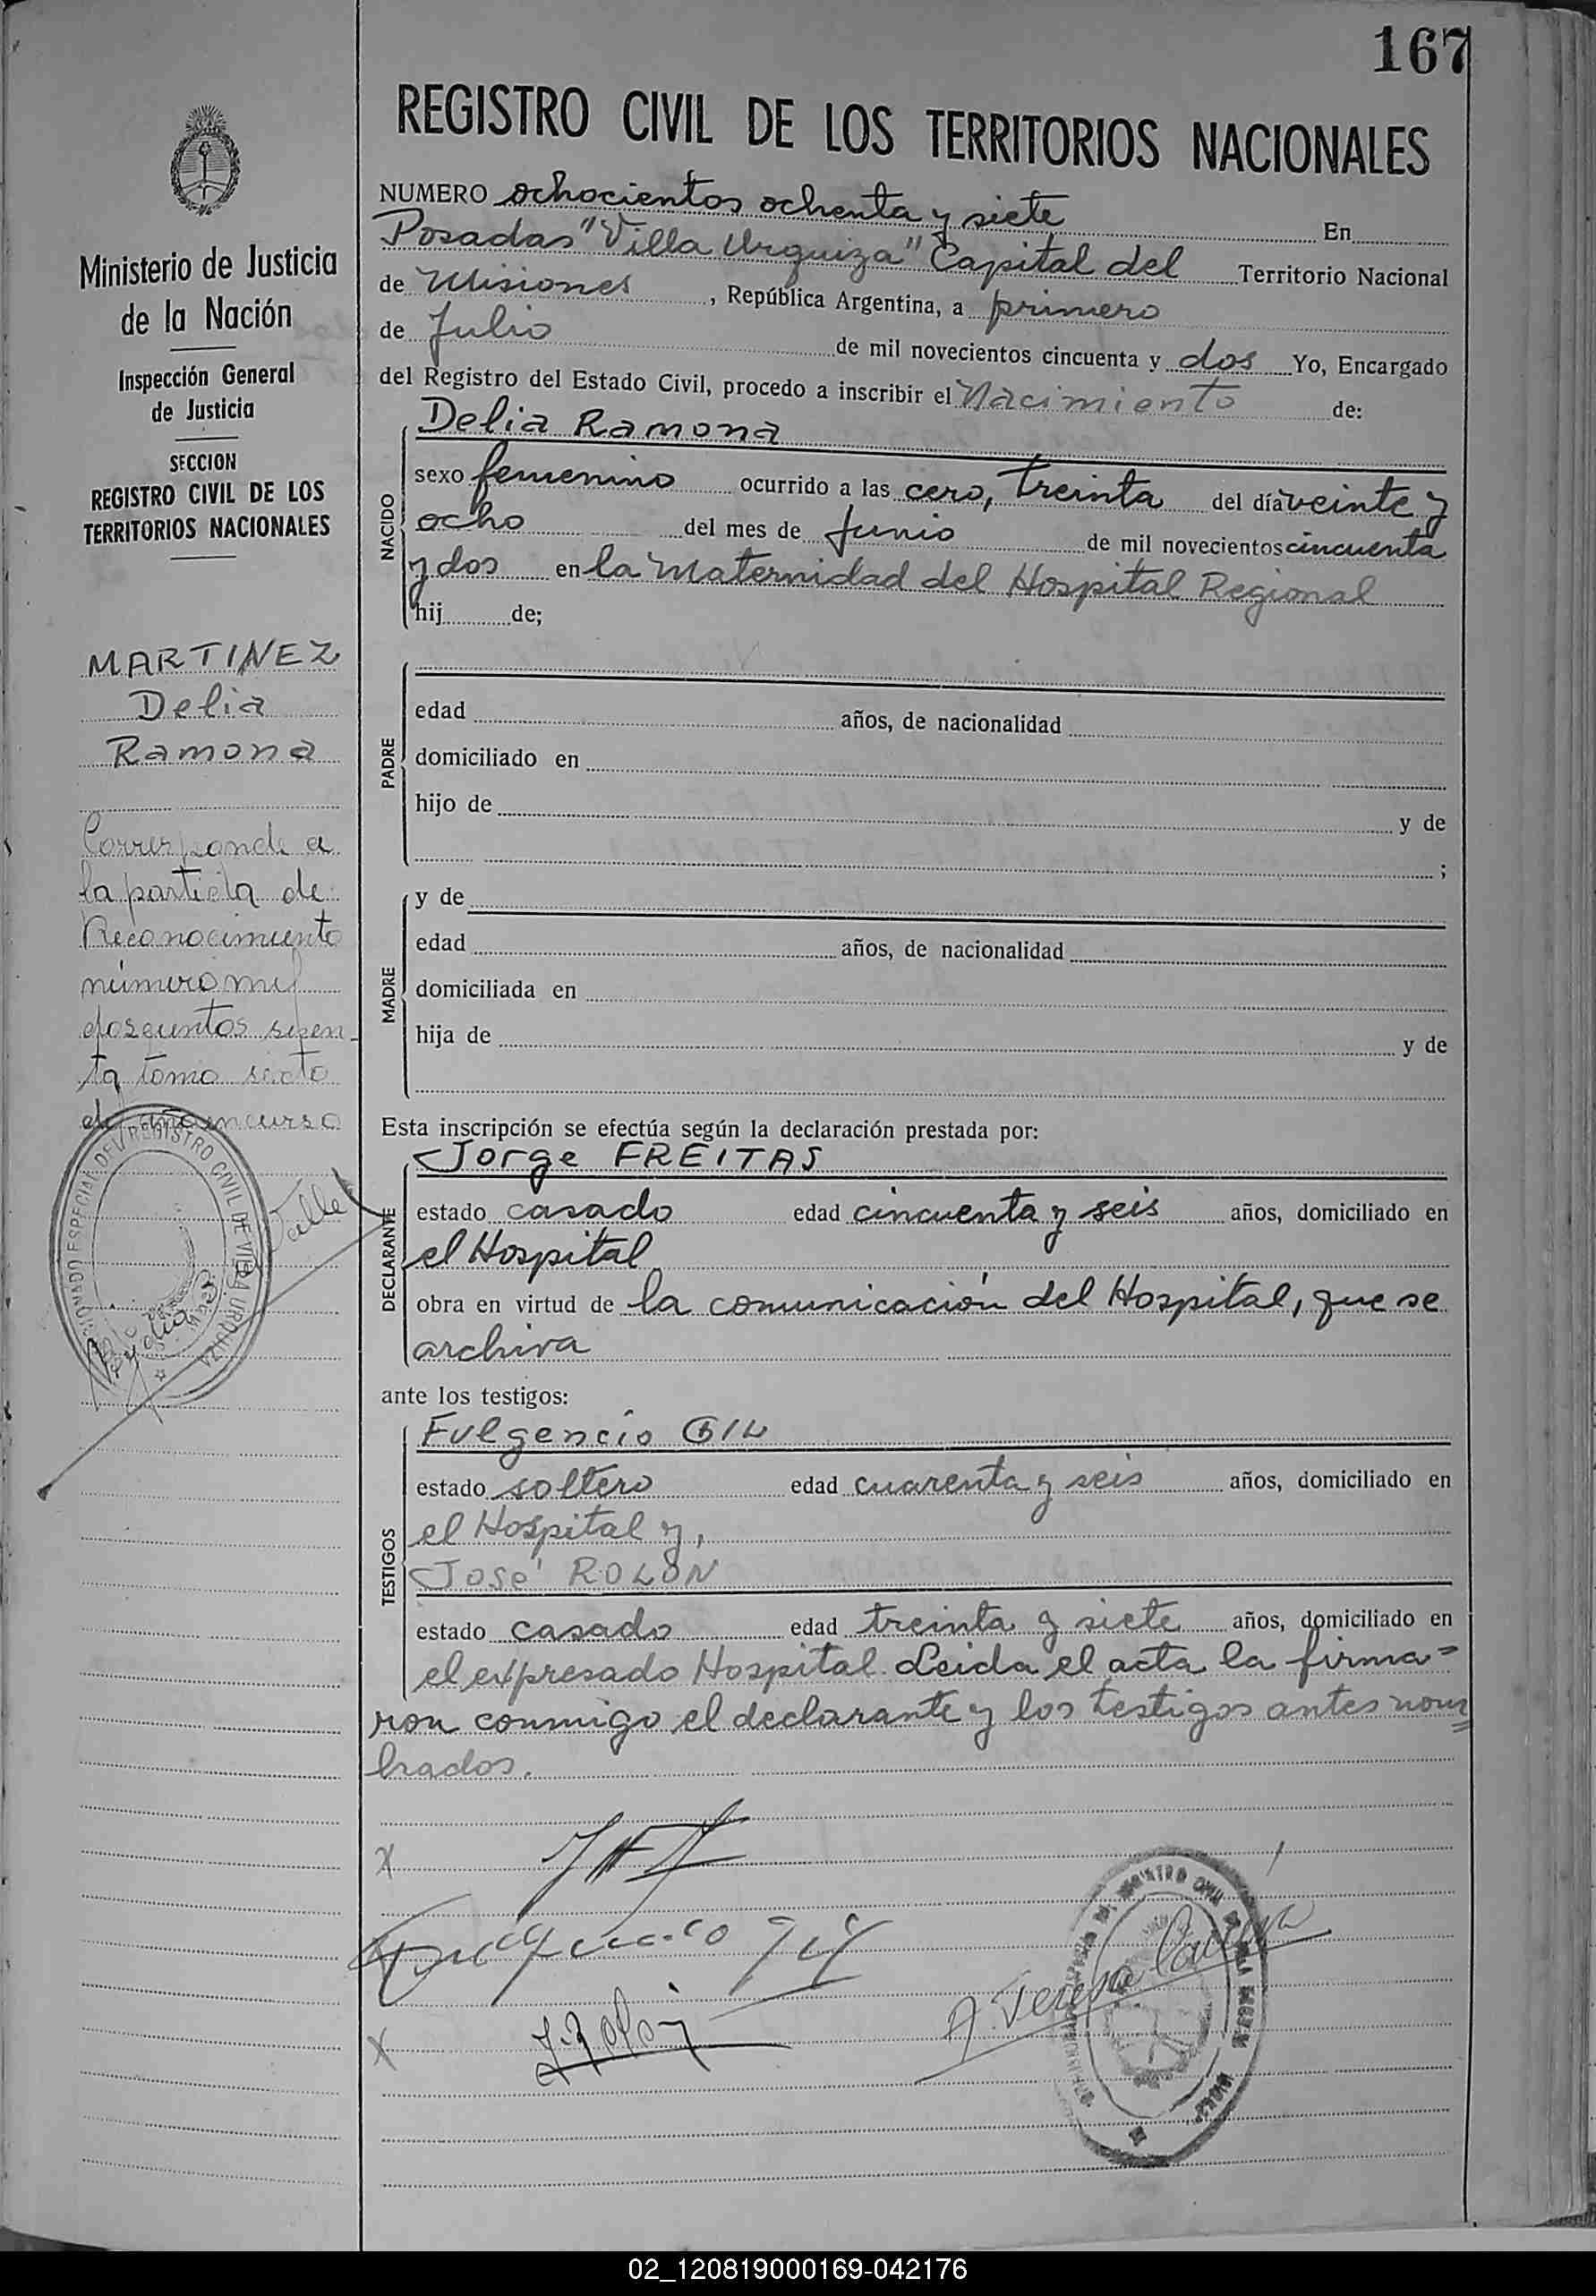 167
REGISTRO CIVIL DE LOS TERRITORIOS NACIONALES
NUMERO ochocientos ochenta y siete En
Posadas "Villa Urquiza" Capital del Territorio Nacional
de Misiones, República Argentina, a primero
de Julio de mil novecientos cincuenta y dos Yo, Encargado
del Registro del Estado Civil, procedo a inscribir el Nacimiento de:
NACIDO
Delia Ramona
sexo femenino ocurrido a las cero, treinta del día veinte y
ocho del mes de Junio de mil novecientos cincuenta
y dos en la Maternidad del Hospital Regional
hij de;
PADRE
edad años, de nacionalidad
domiciliado en
hijo de y de
;
MADRE
y de
edad años, de nacionalidad
domiciliada en
hija de y de
Esta inscripción se efectúa según la declaración prestada por:
DECLARANTE
Jorge FREITAS
estado casado edad cincuenta y seis años, domiciliado en
el Hospital
obra en virtud de la comunicación del Hospital, que se
archiva
ante los testigos:
TESTIGOS
Fulgencio GIL
estado soltero edad cuarenta y seis años, domiciliado en
el Hospital y,
José ROLON
estado casado edad treinta y siete años, domiciliado en
el expresado Hospital. Leida el acta la firma=
ron conmigo el declarante y los testigos antes nom=
brados.
x
x
Ministerio de Justicia
de la Nación
Inspección General
de Justicia
SECCION
REGISTRO CIVIL DE LOS
TERRITORIOS NACIONALES
MARTINEZ
Delia
Ramona
Corresponde a
la partida de
Reconocimiento
número mil
doscientos
tomo sexto
del año en curso
REGISTRO CIVIL DE VILLA URQUIZA
02_120819000169-042176